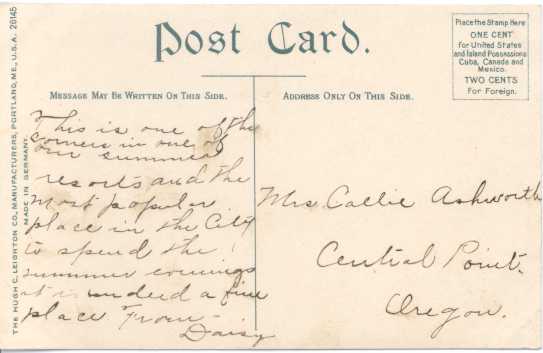 Post Card.
Place the Stamp Here
ONE CENT
for United States
and Island Possessions
Cuba, Canada and
Mexico.
TWO CENTS
For Foreign.
MESSAGE MAY BE WRITTEN ON THIS SIDE.
ADDRESS ONLY ON THIS SIDE.
THE HUGH C. LEIGHTON CO., MANUFACTURERS, PORTLAND, ME., U.S.A. 26145
MADE IN GERMANY.
This is one of the
corners in one of
our summer
resorts and the
most popular
place in the City
to spend the
summer evenings
it is indeed a fine
place. From
Daisy
Mrs. Callie Ashworth
Central Point.
Oregon.